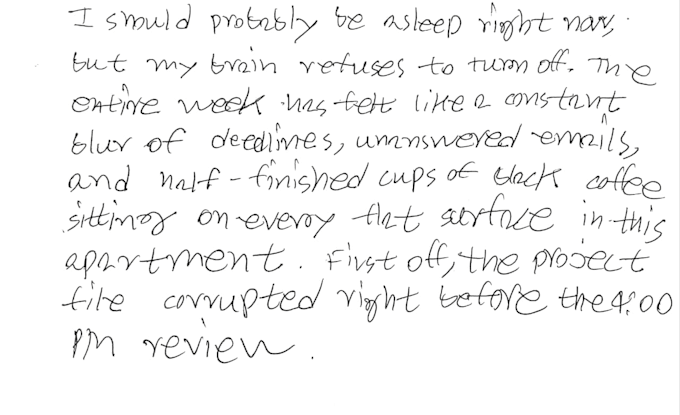 I should probably be asleep right now,
but my brain refuses to turn off. The
entire week has felt like a constant
blur of deedlines, unanswered emails,
and half-finished cups of black coffee
sitting on every flat surface in this
apartment. First off, the project
file corrupted right before the 4:00
PM review.